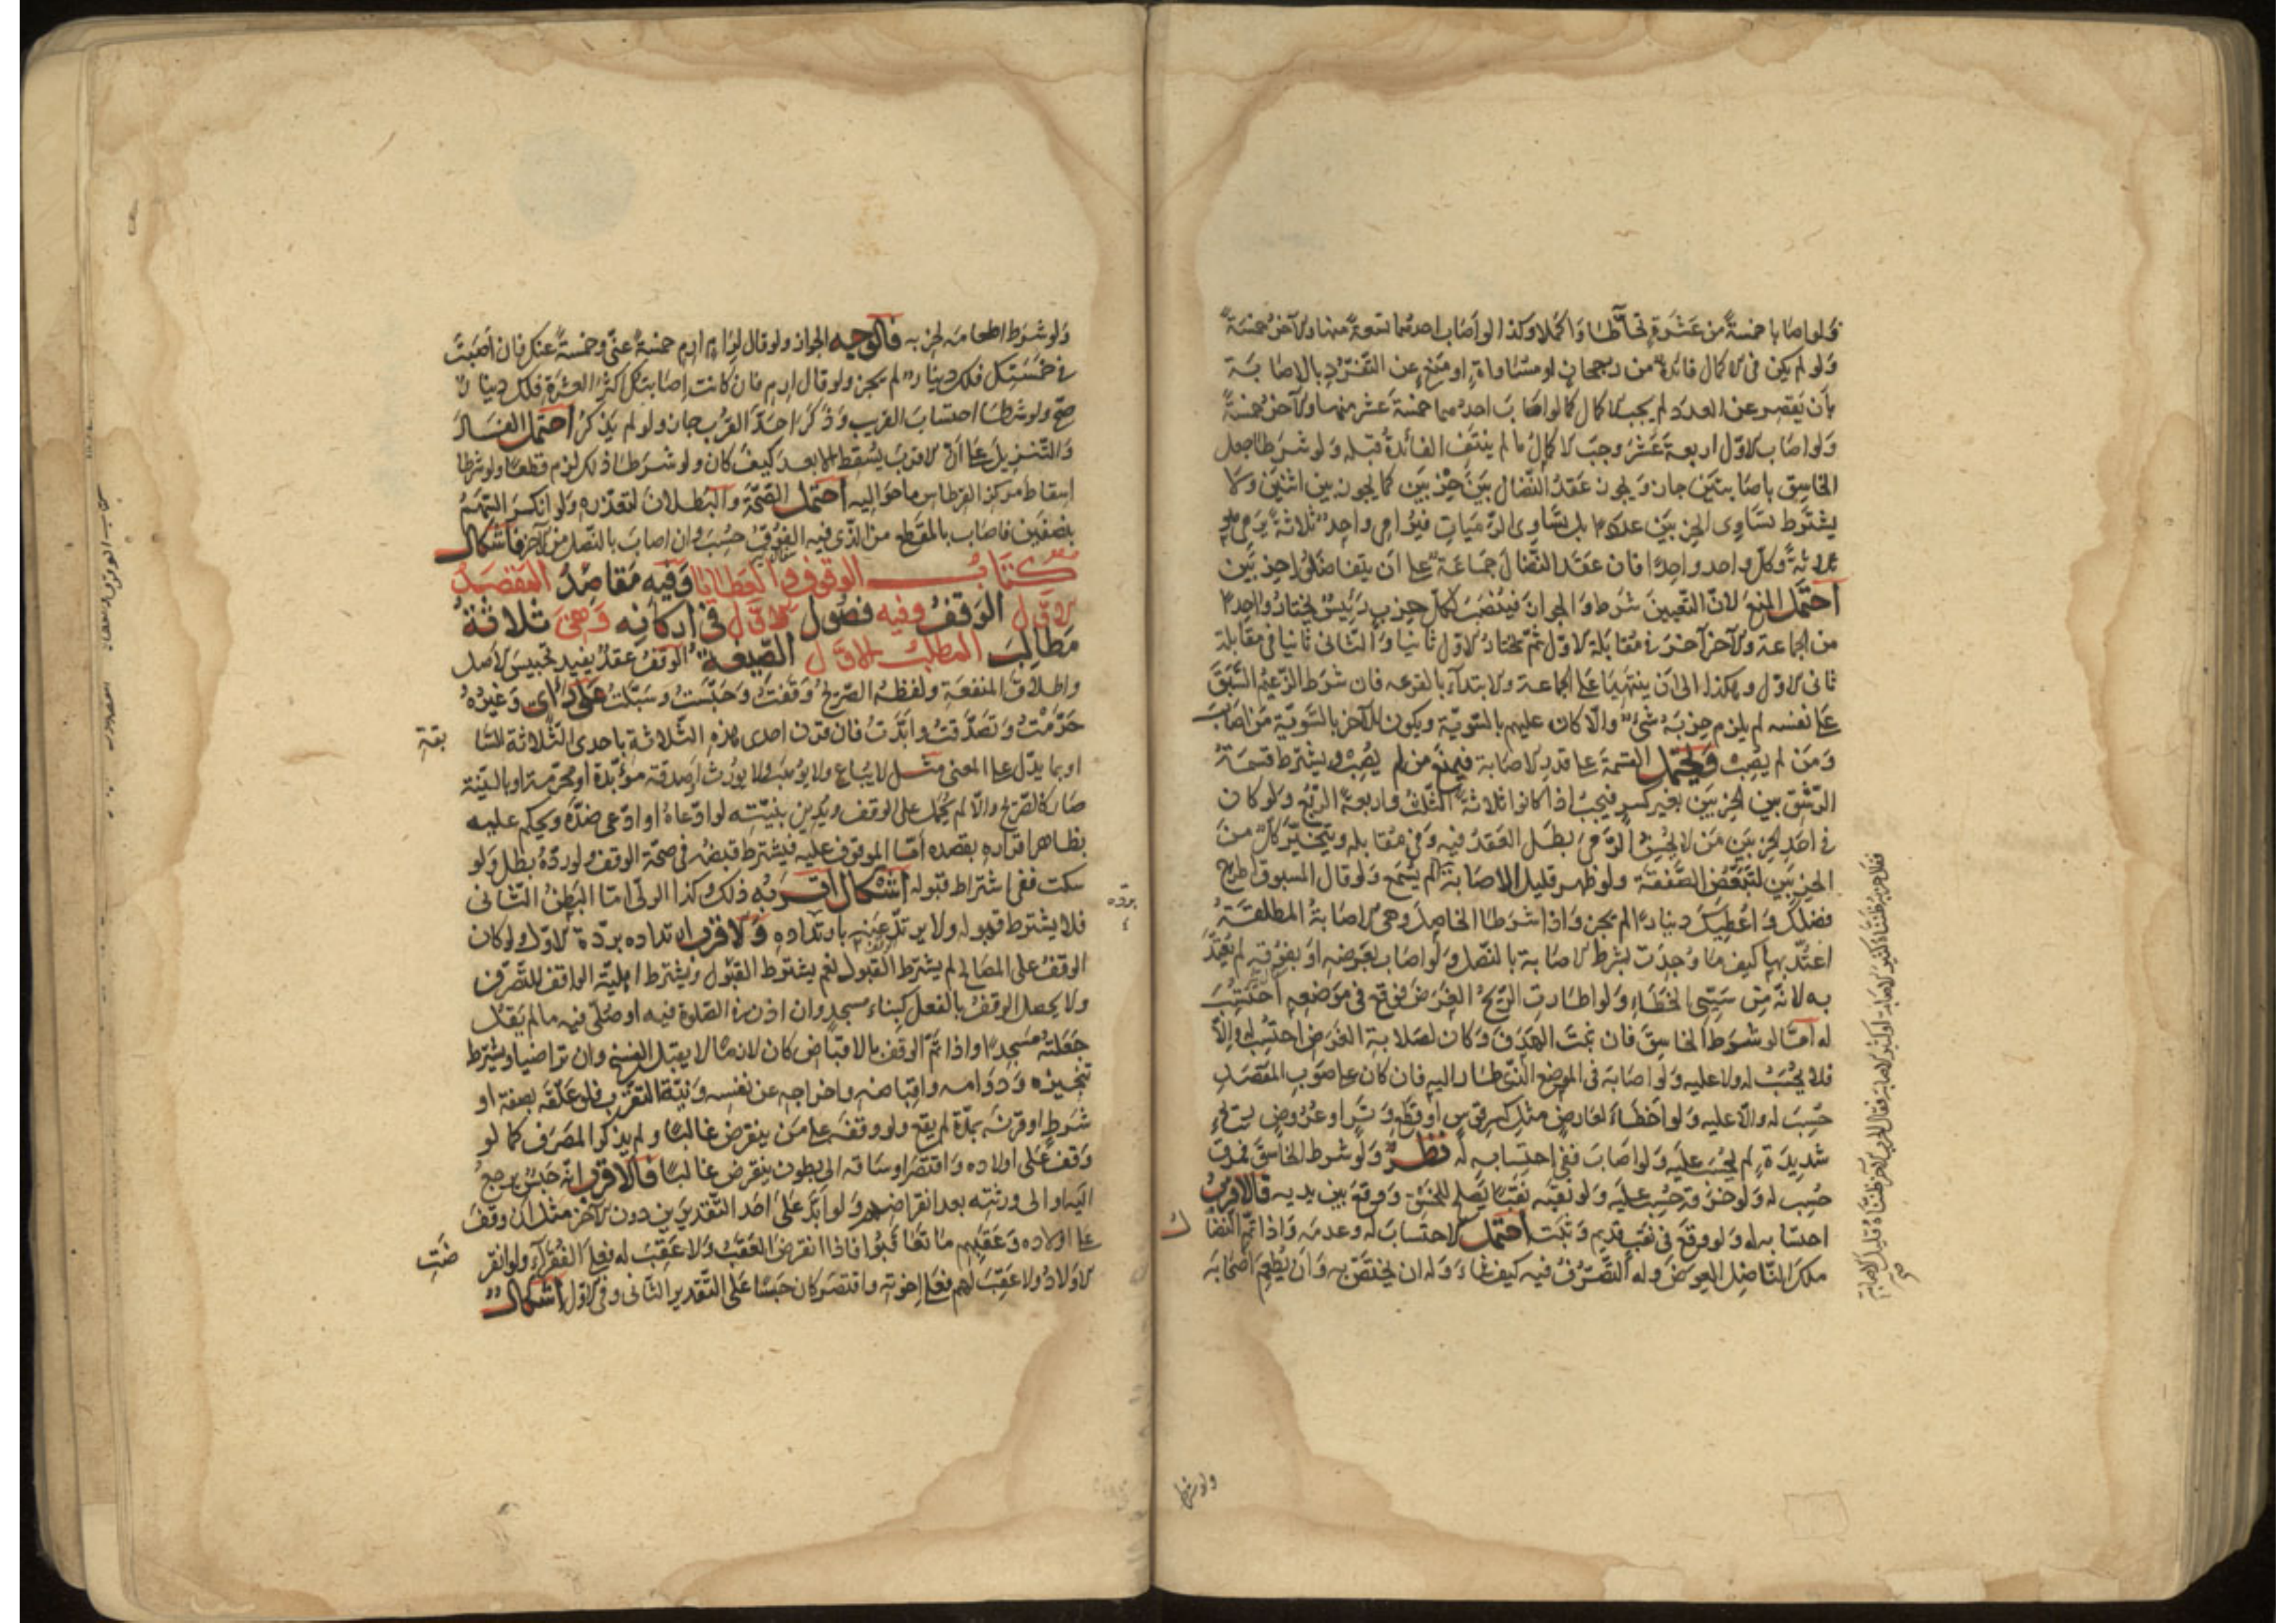 ولو اصابا خمسة من عشرة تحاطا واكملا وكذا لو اصاب احدهما تسعة منها والآخر خمسة
ولو لم يكن في الاكمال فائدة من رجحان او مساواة او منع عن التفرد بالاصابة
بأن يقصر عن العدد لم يجب الاكمال كما لو اصاب احدهما خمسة عشر منها والآخر خمسة
ولو اصاب الاول اربعة عشر وجب الاكمال ما لم ينتف الفائدة قبله ولو شرطا جعل
الخاسق باصابتين جاز ويجوز عقد النضال بين حزبين كما يجوز بين اثنين ولا
يشترط تساوى الحزبين عددا بل تساوى الرميات فيرامى واحد ثلاثة يرمى هو
ثلاثة وكل واحد واحدا فان عقد النضال جماعة على ان يتفاضلوا حزبين
احتمل المنع لان التعيين شرط والجواز فينصب لكل حزب رئيس يختار واحدا
من الجماعة والآخر آخر في مقابلة الاول ثم يختار الاول ثانيا والثانى ثانيا في مقابلة
ثانى الاول وهكذا الى ان ينتهيا على الجماعة والابتداء بالقرعه فان شرط الزعيم السبق
على نفسه لم يلزم حزبه شىء والا كان عليهم بالسوية ويكون للآخر بالسوية من اصاب
ومن لم يصب ويحتمل القسمة على قدر الاصابة فيمنع من لم يصب ويشترط قسمة
الرشق بين الحزبين بغير كسر فيجب اذا كانوا ثلاثة الثلث واربعة الربع ولو كان
في احد الحزبين من لا يحسن الرمى بطل العقد فيه وفي مقابله ويتخير كل من
الحزبين لتبعض الصفقة ولو ظهر قليل الاصابة لم يسمع ولو قال المسبوق اطرح
فضلك واعطيك دينارا لم يجز واذا شرطا الخاصل وهى الاصابة المطلقة
اعتد بها كيف ما وجدت بشرط الاصابة بالنصل ولو اصاب بعرضه او بفوقه لم يعتد
به لانه من سيئ الخطاء ولو اطارت الريح الغرض فوقع في موضعه احتسب
له اما لو شرط الخاسق فان ثبت الهدف وكان لصلابة الغرض احتسب له والا
فلا يحسب له ولا عليه ولو اصابه في الموضع الذى طار اليه فان كان على صوب المقصد
حسب له والا عليه ولو اخطاء لعارض مثل كسر قوس او قطع وتر او عروض ريح
شديدة لم يحسب عليه ولو اصاب ففى احتسابه له نظر ولو شرط الخاسق فمرق
حسب له ولو خرقه حسب عليه ولو نقبه نقبا يصلح للخسق ووقع بين يديه فالاقرب
احتسابه له ولو وقع في نقب قديم وثبت احتمل الاحتساب له وعدمه واذا تم النضال
ملك الناضل العوض وله التصرف فيه كيف شاء وله ان يختص به وان يطعم اصحابه
فقال حزبه ظنناه كثير الاصابة او كثير الاصابة فقال الحزب الآخر ظنناه قليل الاصابة
صح
ولو شرط
ولو شرط اطعامه لحزبه فالوجه الجواز ولو قال لرام ارم خمسة عنى وخمسة عنك فان اصبت
في خمستك فلك دينار لم يجز ولو قال ارم فان كانت اصابتك اكثر العشرة فلك دينار
صح ولو شرطا احتساب القريب وذكرا حد القرب جاز ولو لم يذكرا احتمل الفساد
والتنزيل على ان الاقرب يسقط الابعد كيف كان ولو شرطا ذلك لزم قطعا ولو شرطا
اسقاط مركز القرطاس ما حواليه احتمل الصحة والبطلان لتعذره ولو انكسر السهم
بنصفين فاصاب بالمقطع من الذى فيه الفوق حسب وان اصاب بالنصل من الآخر فاشكال
كتاب الوقوف والعطايا وفيه مقاصد المقصد
الاول الوقف وفيه فصول الاول في اركانه وهى ثلاثة
مطالب المطلب الاول الصيغة الوقف عقد يفيد تحبيس الاصل
واطلاق المنفعة ولفظه الصريح وقفت وحبست وسبلت على راى وغيره
حرمت وتصدقت وابدت فان قرن احدى هذه الثلاثة باحدى الثلاثة السا بقة
او بما يدل على المعنى مثل لا يباع ولا يوهب ولا يورث او صدقة مؤبدة او محرمة او بالنية
صار كالصريح والا لم يحمل على الوقف ويدين بنيته لو ادعاه او ادعى ضده ويحكم عليه
بظاهر اقراره بقصده اما الموقوف عليه فيشترط قبضه في صحة الوقف ولو رده بطل ولو
سكت ففى اشتراط قبوله اشكال اقربه ذلك وكذا الولى اما البطن الثانى
فلا يشترط قبوله ولا يرتد عنه بارتداده والاقرب ارتداده بردة الاول ولو كان
برده
الوقف على المصالح لم يشترط القبول نعم يشترط القبول ويشترط اهلية الواقف للتصرف
ولا يحصل الوقف بالفعل كبناء مسجد وان اذن في الصلوة فيه او صلى فيه ما لم يقل
جعلته مسجدا واذا تم الوقف بالاقباض كان لازما لا يقبل الفسخ وان تراضيا ويشترط
تنجيزه ودوامه واقباضه واخراجه عن نفسه ونية التقرب فلو علقه بصفة او
شرط او قرنه بمدة لم يقع ولو وقفه على من ينقرض غالبا ولم يذكر المصرف كما لو
وقف على اولاده واقتصر او ساقه الى بطون ينقرض غالبا فالاقرب انه حبس يرجع
اليه او الى ورثته بعد انقراضهم ولو ابد على احد التقديرين دون الآخر مثل ان وقف
على اولاده وعقبهم ما تعاقبوا فاذا انقرض العقب ولا عقب له فعلى الفقراء ولو انقر ضت
الاولاد ولا عقب لهم فعلى اخوته واقتصر كان حبسا على التقدير الثانى وفي الاول اشكال